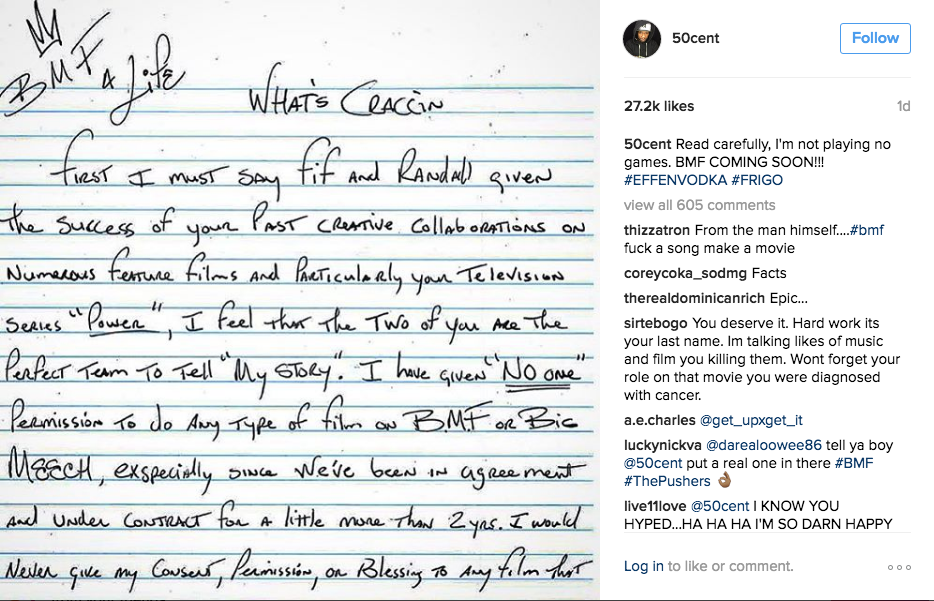 BMF 4 Life
WHAT'S CRACCIN
FIRST I must SAY Fif AND RANDALL given
the Success of your PAST CREATIVE COllABORATIONS ON
Numerous feature films AND PARTICULARLY your TELEVISION
SERIES "Power", I feel that the Two of you ARE THE
Perfect Team To Tell "My STORY". I have given "NO ONE"
Permission To do ANY TYPE of film ON B.M.F OR BIG
MEECH, exspecially since we've been in agreement
AND UNDER CONTRACT for A little more than 2 yrs. I would
Never give my Consent, Permission, or Blessing To Any film that
50cent
Follow
27.2k likes
1d
50cent Read carefully, I'm not playing no
games. BMF COMING SOON!!!
#EFFENVODKA #FRIGO
view all 605 comments
thizzatron From the man himself....#bmf
fuck a song make a movie
coreycoka_sodmg Facts
therealdominicanrich Epic...
sirtebogo You deserve it. Hard work its
your last name. Im talking likes of music
and film you killing them. Wont forget your
role on that movie you were diagnosed
with cancer.
a.e.charles @get_upxget_it
luckynickva @darealoowee86 tell ya boy
@50cent put a real one in there #BMF
#ThePushers 👌🏽
live11love @50cent I KNOW YOU
HYPED...HA HA HA I'M SO DARN HAPPY
Log in to like or comment.